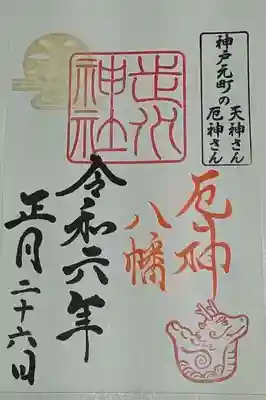 神戸元町の
天神さん
厄神さん
走水
神社
厄神
八幡
令和六年
正月二十六日